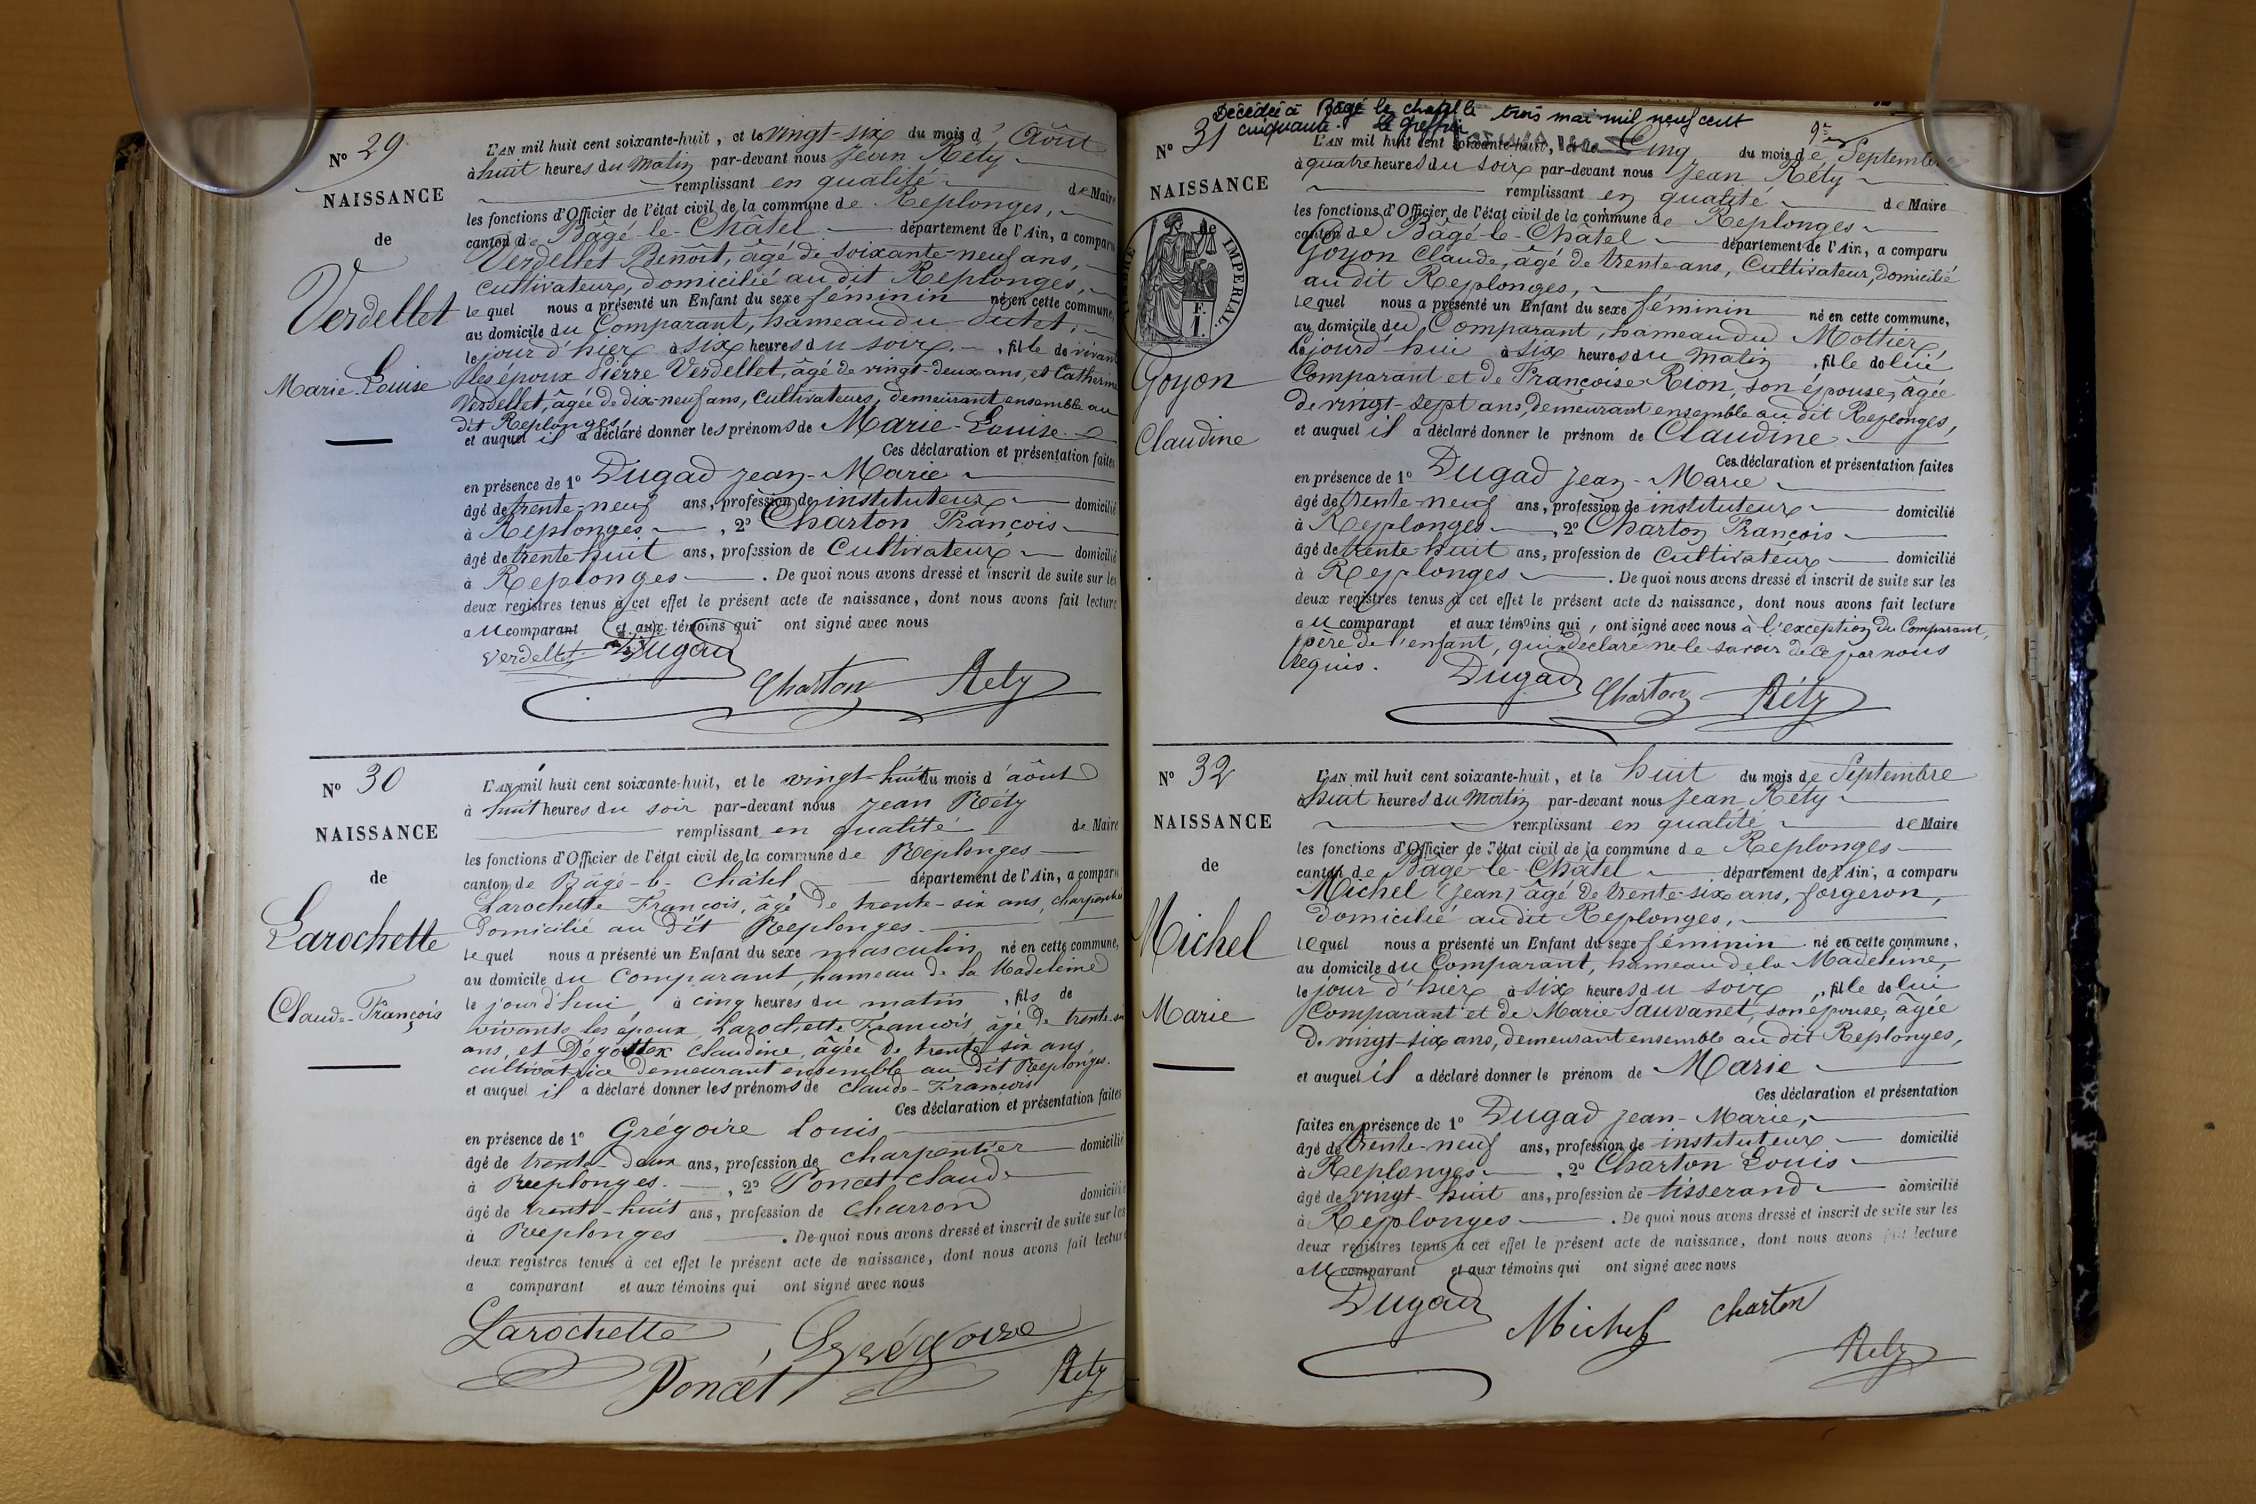 N° 29
NAISSANCE
de
Verdellet
Marie-Louise
L'AN mil huit cent soixante-huit, et le vingt-six du mois d'Août
à huit heures du matin par-devant nous Jean Réty
remplissant en qualité de Maire
les fonctions d'Officier de l'état civil de la commune de Replonges,
canton de Bâgé-le-Châtel département de l'Ain, a comparu
Verdellet Benoît, âgé de soixante-neuf ans,
cultivateur, domicilié au dit Replonges,
lequel nous a présenté un Enfant du sexe féminin né en cette commune,
au domicile du Comparant, hameau du
le jour d'hier à six heures du soir, fille de vivant
les époux Pierre Verdellet, âgé de vingt-deux ans, et Catherine
Verdellet, âgée de dix-neuf ans, cultivateurs, demeurant ensemble au
dit Replonges,
et auquel il a déclaré donner les prénoms de Marie-Louise
Ces déclaration et présentation faites
en présence de 1° Dugad Jean-Marie
âgé de trente-neuf ans, profession de instituteur domicilié
à Replonges, 2° Charton François
âgé de trente huit ans, profession de Cultivateur domicilié
à Replonges. De quoi nous avons dressé et inscrit de suite sur les
deux registres tenus à cet effet le présent acte de naissance, dont nous avons fait lecture
au comparant et aux témoins qui ont signé avec nous
Verdellet Dugad
Charton Réty
N° 30
NAISSANCE
de
Larochette
Claude-François
L'AN mil huit cent soixante-huit, et le vingt-huit du mois d'août
à huit heures du soir par-devant nous Jean Réty
remplissant en qualité de Maire
les fonctions d'Officier de l'état civil de la commune de Replonges
canton de Bâgé-le-Châtel département de l'Ain, a comparu
Larochette François, âgé de trente-six ans, charpentier
domicilié au dit Replonges.
lequel nous a présenté un Enfant du sexe masculin né en cette commune,
au domicile du comparant, hameau de la Madeleine
le jourd'hui à cinq heures du matin, fils de
vivants les époux Larochette François, âgé de trente-six
ans, et Dégottex Claudine, âgée de trente six ans,
cultivatrice demeurant ensemble au dit Replonges.
et auquel il a déclaré donner les prénoms de Claude-François
Ces déclaration et présentation faites
en présence de 1° Grégoire Louis
âgé de trente-deux ans, profession de charpentier domicilié
à Replonges., 2° Poncet Claude
âgé de trente-huit ans, profession de charron domicilié
à Replonges. De quoi nous avons dressé et inscrit de suite sur les
deux registres tenus à cet effet le présent acte de naissance, dont nous avons fait lecture
a comparant et aux témoins qui ont signé avec nous
Larochette, Grégoire
Poncet Réty
Décédée à Bâgé le chatel le trois mai mil neuf cent
cinquante. Le Greffier
N° 31
NAISSANCE
de
TIMBRE IMPERIAL.
F.
1.
Goyon
Claudine
L'AN mil huit cent soixante-huit, et le Cinq du mois de Septembre
à quatre heures du soir par-devant nous Jean Réty
remplissant en qualité de Maire
les fonctions d'Officier de l'état civil de la commune de Replonges
canton de Bâgé-le-Châtel département de l'Ain, a comparu
Goyon Claude, âgé de trente ans, Cultivateur, domicilié
au dit Replonges,
lequel nous a présenté un Enfant du sexe féminin né en cette commune,
au domicile du Comparant, hameau du Mottier,
le jourd'hui à six heures du matin, fille de lui
Comparant et de Françoise Rion, son épouse, âgée
de vingt-sept ans, demeurant ensemble au dit Replonges,
et auquel il a déclaré donner le prénom de Claudine
Ces déclaration et présentation faites
en présence de 1° Dugad Jean-Marie
âgé de trente-neuf ans, profession de instituteur domicilié
à Replonges, 2° Charton François
âgé de trente huit ans, profession de cultivateur domicilié
à Replonges. De quoi nous avons dressé et inscrit de suite sur les
deux registres tenus à cet effet le présent acte de naissance, dont nous avons fait lecture
au comparant et aux témoins qui, ont signé avec nous à l'exception du Comparant,
père de l'enfant, qui a déclaré ne le savoir de ce par nous
requis.
Dugad Charton Réty
N° 32
NAISSANCE
de
Michel
Marie
L'AN mil huit cent soixante-huit, et le huit du mois de Septembre
à huit heures du matin par-devant nous Jean Réty
remplissant en qualité de Maire
les fonctions d'Officier de l'état civil de la commune de Replonges
canton de Bâgé-le-Châtel département de l'Ain, a comparu
Michel Jean, âgé de trente-six ans, forgeron,
domicilié au dit Replonges,
lequel nous a présenté un Enfant du sexe féminin né en cette commune,
au domicile du Comparant, hameau de la Madeleine,
le jour d'hier à six heures du soir, fille de lui
Comparant et de Marie Sauvanet, son épouse, âgée
de vingt-six ans, demeurant ensemble au dit Replonges,
et auquel il a déclaré donner le prénom de Marie
Ces déclaration et présentation
faites en présence de 1° Dugad Jean-Marie,
âgé de trente-neuf ans, profession de instituteur domicilié
à Replonges, 2° Charton Louis
âgé de vingt-huit ans, profession de tisserand domicilié
à Replonges. De quoi nous avons dressé et inscrit de suite sur les
deux registres tenus à cet effet le présent acte de naissance, dont nous avons fait lecture
au comparant et aux témoins qui ont signé avec nous
Dugad Michel Charton
Réty